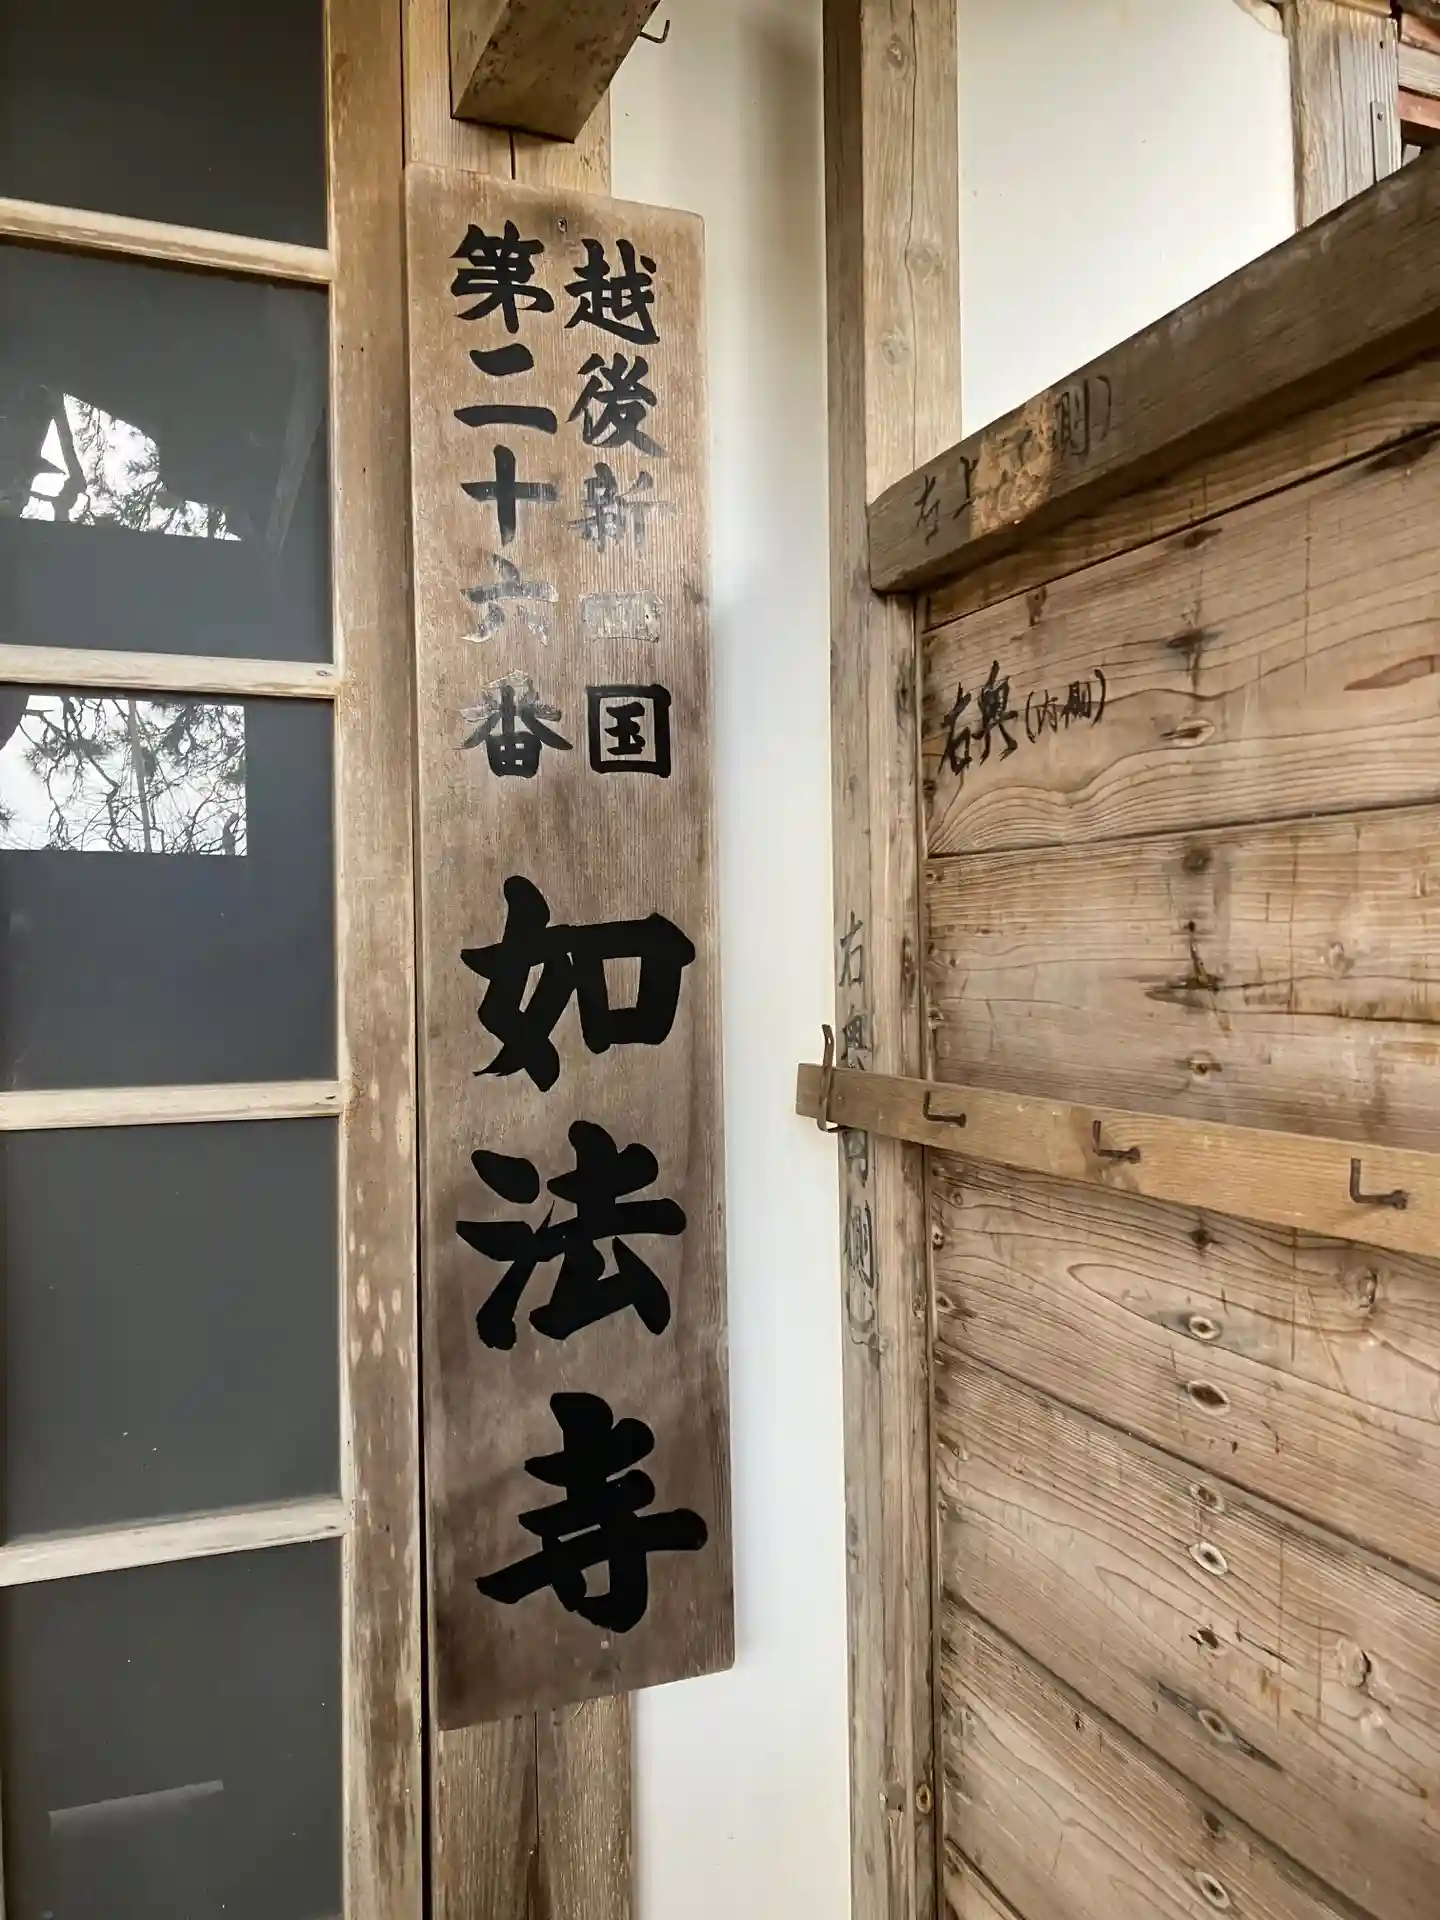 越後新四国
第二十六番
如法寺
右奥(内側)
右奥内側し